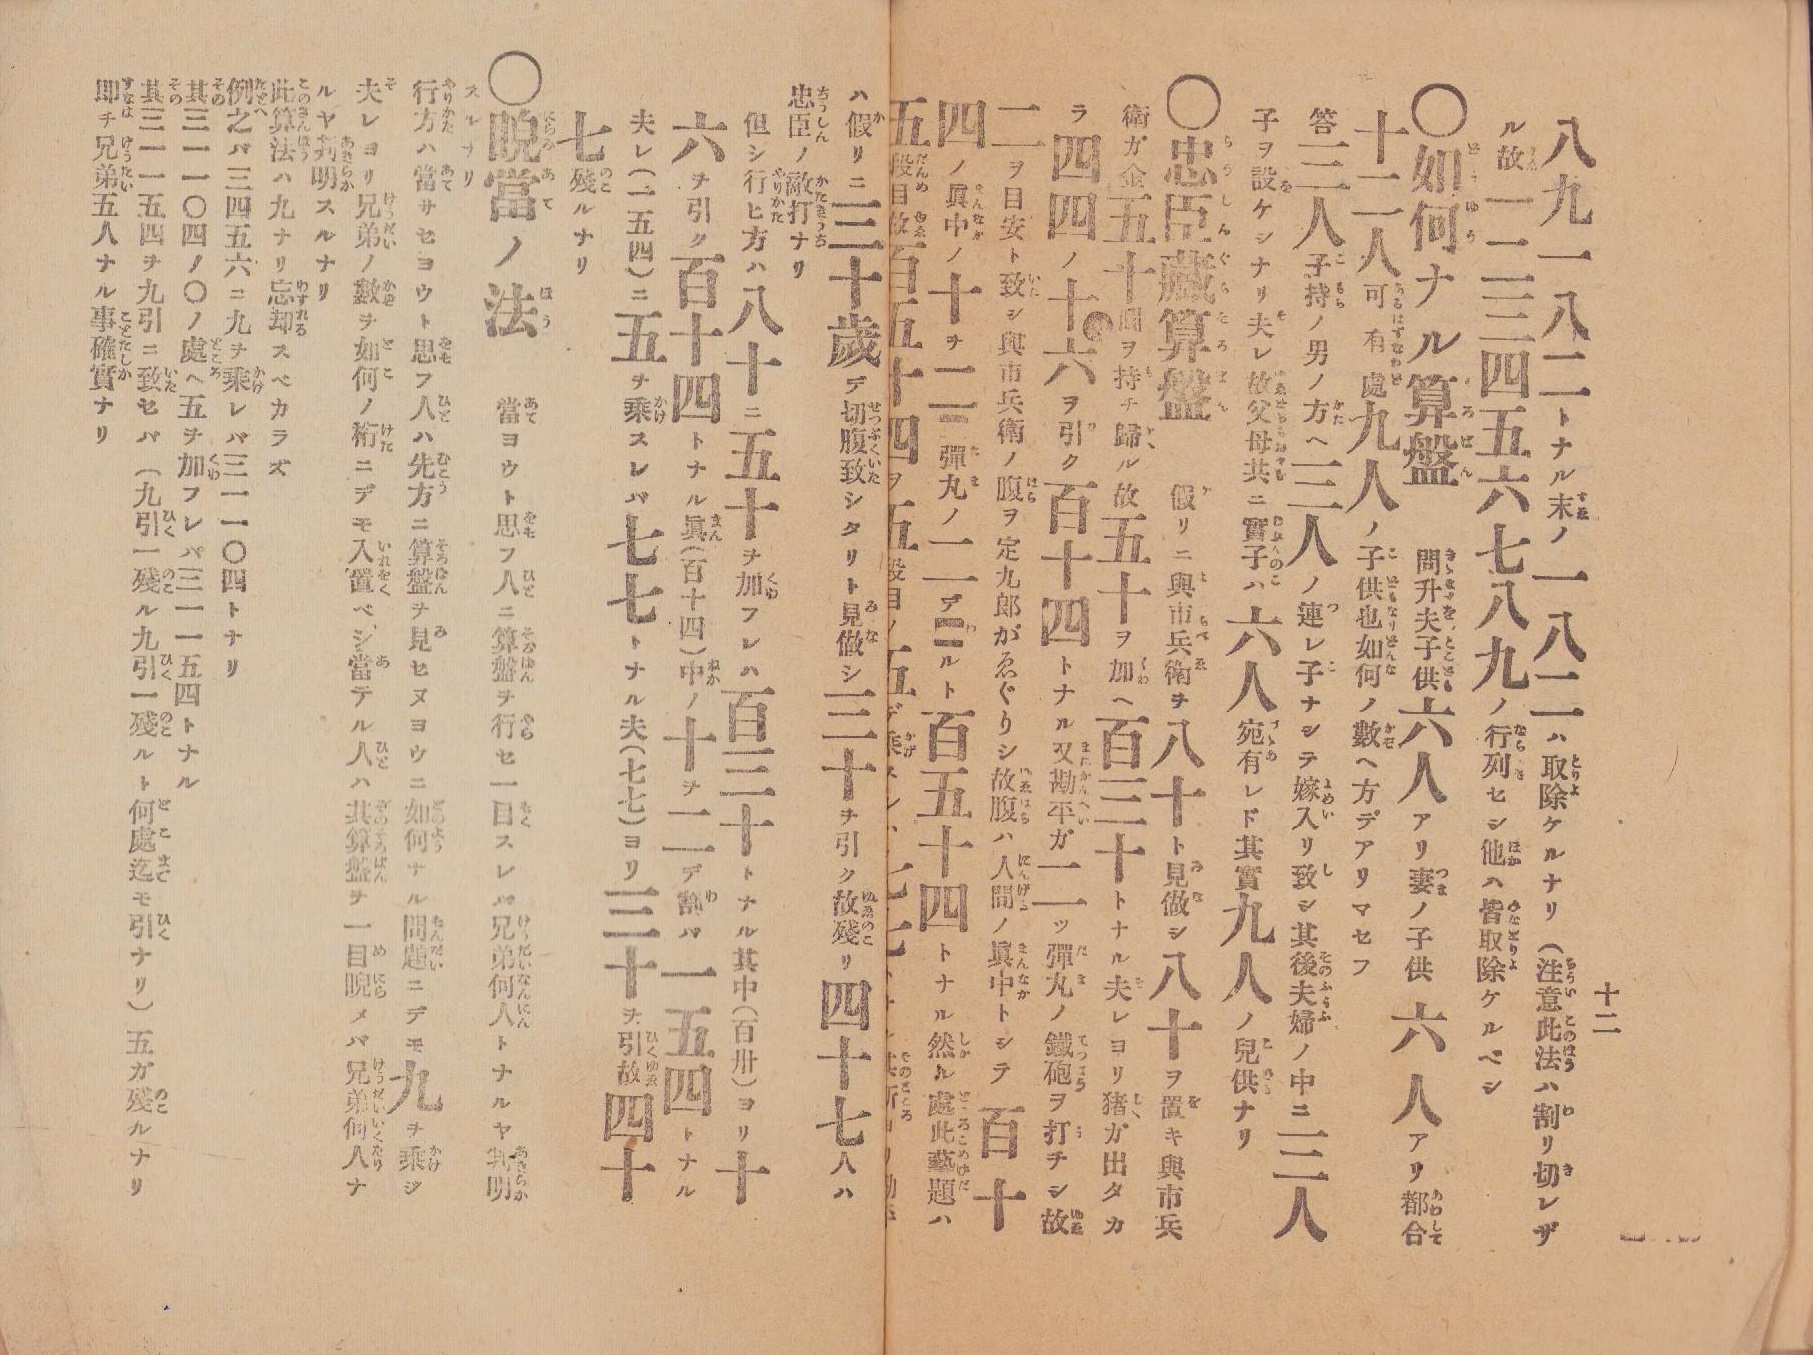 十二
八九一八二トナル末ノ一八二ハ取除ケルナリ（注意此法ハ割リ切レザ
ル故一二三四五六七八九ノ行列セシ他ハ皆取除ケルベシ
〇如何ナル算盤 問升夫子供六人アリ妻ノ子供六人アリ都合
十二人可有處九人ノ子供也如何ノ數ヘ方デアリマセフ
答三人子持ノ男ノ方ヘ三人ノ連レ子ナシテ嫁入リ致シ其後夫婦ノ中ニ三人
子ヲ設ケシナリ夫レ故父母共ニ實子ハ六人宛有レド其實九人ノ兒供ナリ
〇忠臣藏算盤 假リニ與市兵衛ヲ八十ト見做シ八十ヲ置キ與市兵
衛ガ金五十圓ヲ持チ歸ル故五十ヲ加ヘ百三十トナル夫レヨリ猪ガ出タカ
ラ四四ノ十六ヲ引ク百十四トナル又勘平ガ二ツ彈丸ノ鐵砲ヲ打チシ故
二ヲ目安ト致シ與市兵衛ノ腹ヲ定九郎がゑぐりシ故腹ハ人間ノ眞中トシテ百十
四ノ眞中ノ十ヲ二ニ彈丸ノ二デ ルト百五十四トナル然ル處此藝題ハ
五段目故百五十四ヲ五段目ノ五デ乘スレバ七七ト
ハ假リニ三十歲デ切腹致シタリト見做シ三十ヲ引ク故殘リ四十七人ハ
忠臣ノ敵打ナリ
但シ行ヒ方ハ八十ニ五十ヲ加フレハ百三十トナル其中（百卅）ヨリ十
六ヲ引ク百十四トナル眞（百十四）中ノ十ヲ二デ割バ一五四トナル
夫レ（一五四）ニ五ヲ乘スレバ七七トナル夫（七七）ヨリ三十ヲ引故四十
七殘ルナリ
〇睨當ノ法 當ヨウト思フ人ニ算盤ヲ行セ一目スレバ兄弟何人トナルヤ判明
スルナリ
行方ハ當サセヨウト思フ人ハ先方ニ算盤ヲ見セヌヨウニ如何ナル問題ニデモ九ヲ乘ジ
夫レヨリ兄弟ノ數ヲ如何ノ桁ニデモ入置ベシ當テル人ハ其算盤ヲ一目睨メバ兄弟何人ナ
ルヤ判明スルナリ
此算法ハ九ナリ忘却スベカラズ
例之バ三四五六ニ九ヲ乘レバ三一一〇四トナリ
其三一一〇四ノ〇ノ處ヘ五ヲ加フレバ三一一五四トナル
其三一一五四ヲ九引ニ致セバ（九引一殘ル九引一殘ルト何處迄モ引ナリ）五ガ殘ルナリ
即チ兄弟五人ナル事確實ナリ